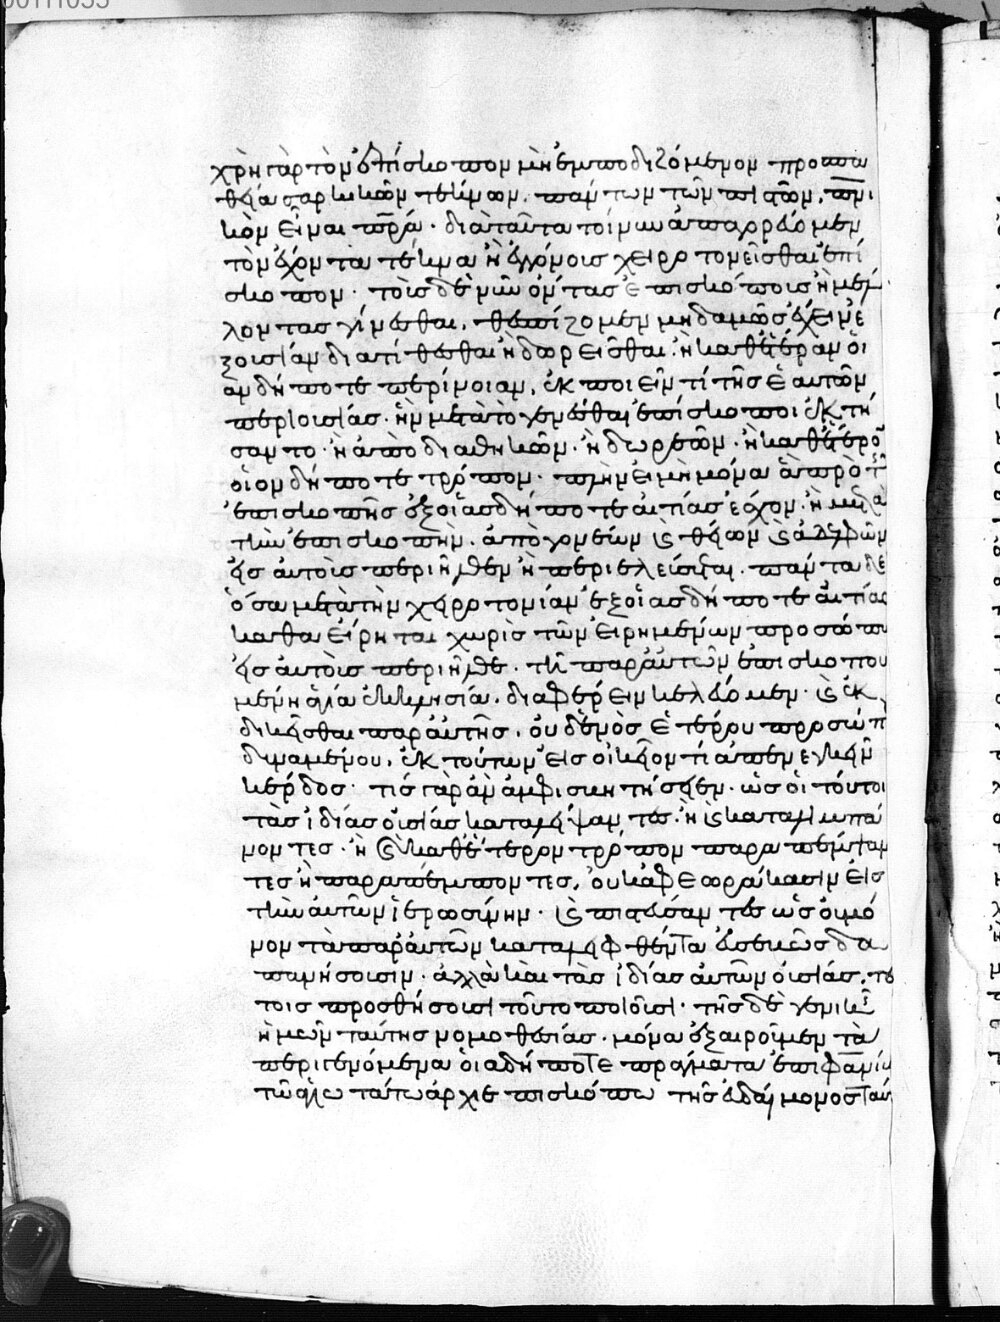 χρὴ γὰρ τὸν ἐπίσκοπον μὴ ἐμποδιζόμενον προσπα
θεία σαρκικῶν τέκνων, πάντων τῶν πιστῶν, πνι
κὸν εἶναι πρα· διὰ ταῦτα τοίνυν ἀπαγορεύομεν
τὸν ἔχοντα τέκνα ἢ ἐγγόνους χειροτονεῖσθαι ἐπί
σκοπον· τοὺς δὲ νῦν ὄντας ἐπισκόπους ἢ μέλ
λοντας γίνεσθαι, θεσπίζομεν μηδαμῶς ἔχειν ἐ
ξουσίαν διατίθεσθαι ἢ δωρεῖσθαι, ἢ καθ' ἕτερον οἱ
ανδήποτε περίνοιαν, ἐκποιεῖν τί τῆς ἑαυτῶν
περιουσίας· ἣν μετὰ τὸ γενέσθαι ἐπίσκοποι ἐκτή
σαντο· ἢ ἀπὸ διαθηκῶν· ἢ δωρεῶν· ἢ καθ' ἕτερον
οἱονδήποτε τρόπον· πλὴν εἰ μὴ μόνα ἃ πρὸ τῆς
ἐπισκοπῆς ἐξ οἱασδήποτε αἰτίας ἔσχον· ἢ μετὰ
τὴν ἐπισκοπὴν· ἀπὸ γονέων καὶ θείων καὶ ἀδελφῶν
εἰς αὐτοὺς περιῆλθεν ἢ περιελεύσεται. πάντα δὲ
ὅσα μετὰ τὴν χειροτονίαν ἐξ οἱασδήποτε αἰτίας
καθὰ εἴρηται χωρὶς τῶν εἰρημένων προσώπων
εἰς αὐτοὺς περιῆλθε· τῇ παρ' αὐτῶν ἐπισκοπου
μένη ἁγία ἐκκλησία, διαφέρειν κελεύομεν· καὶ ἐκ
δικεῖσθαι παρ' αὐτῆς, οὐδενὸς ἑτέρου προσώπου
δυναμένου, ἐκ τούτων εἰς οἰκεῖον τί ἀπενεγκεῖν
κέρδος· τίς γὰρ ἂν ἀμφισβητήσειεν· ὡς οἱ τούτοι
τὰς ἰδίας οὐσίας καταλείψαντες· ἢ καὶ καταλιμπά
νοντες· ἢ καὶ καθ' ἕτερον τρόπον παραπέμψαν
τες ἢ παραπέμποντες, οὐκ ἀφεωράκασιν εἰς
τὴν αὐτῶν ἱερωσύνην· καὶ πιστεύσαντες ὡς οὐ μό
νον τὰ παρ' αὐτῶν καταλειφθέντα εὐσεβῶς δα
πανήσουσιν· ἀλλὰ καὶ τὰς ἰδίας αὐτῶν οὐσίας, τού
τοις προσθήσουσι τοῦτο ποιοῦσι· τῆς δὲ γενικῆς
ἡμῶν ταύτης νομοθεσίας· μόνα ἐξαιροῦμεν τὰ
περιγενόμενα οἱαδήποτε πράγματα ἐπιφανίω
τῶ ἁγιωτάτω ἀρχιεπισκόπω τῆς εὐδαίμονος ταύ